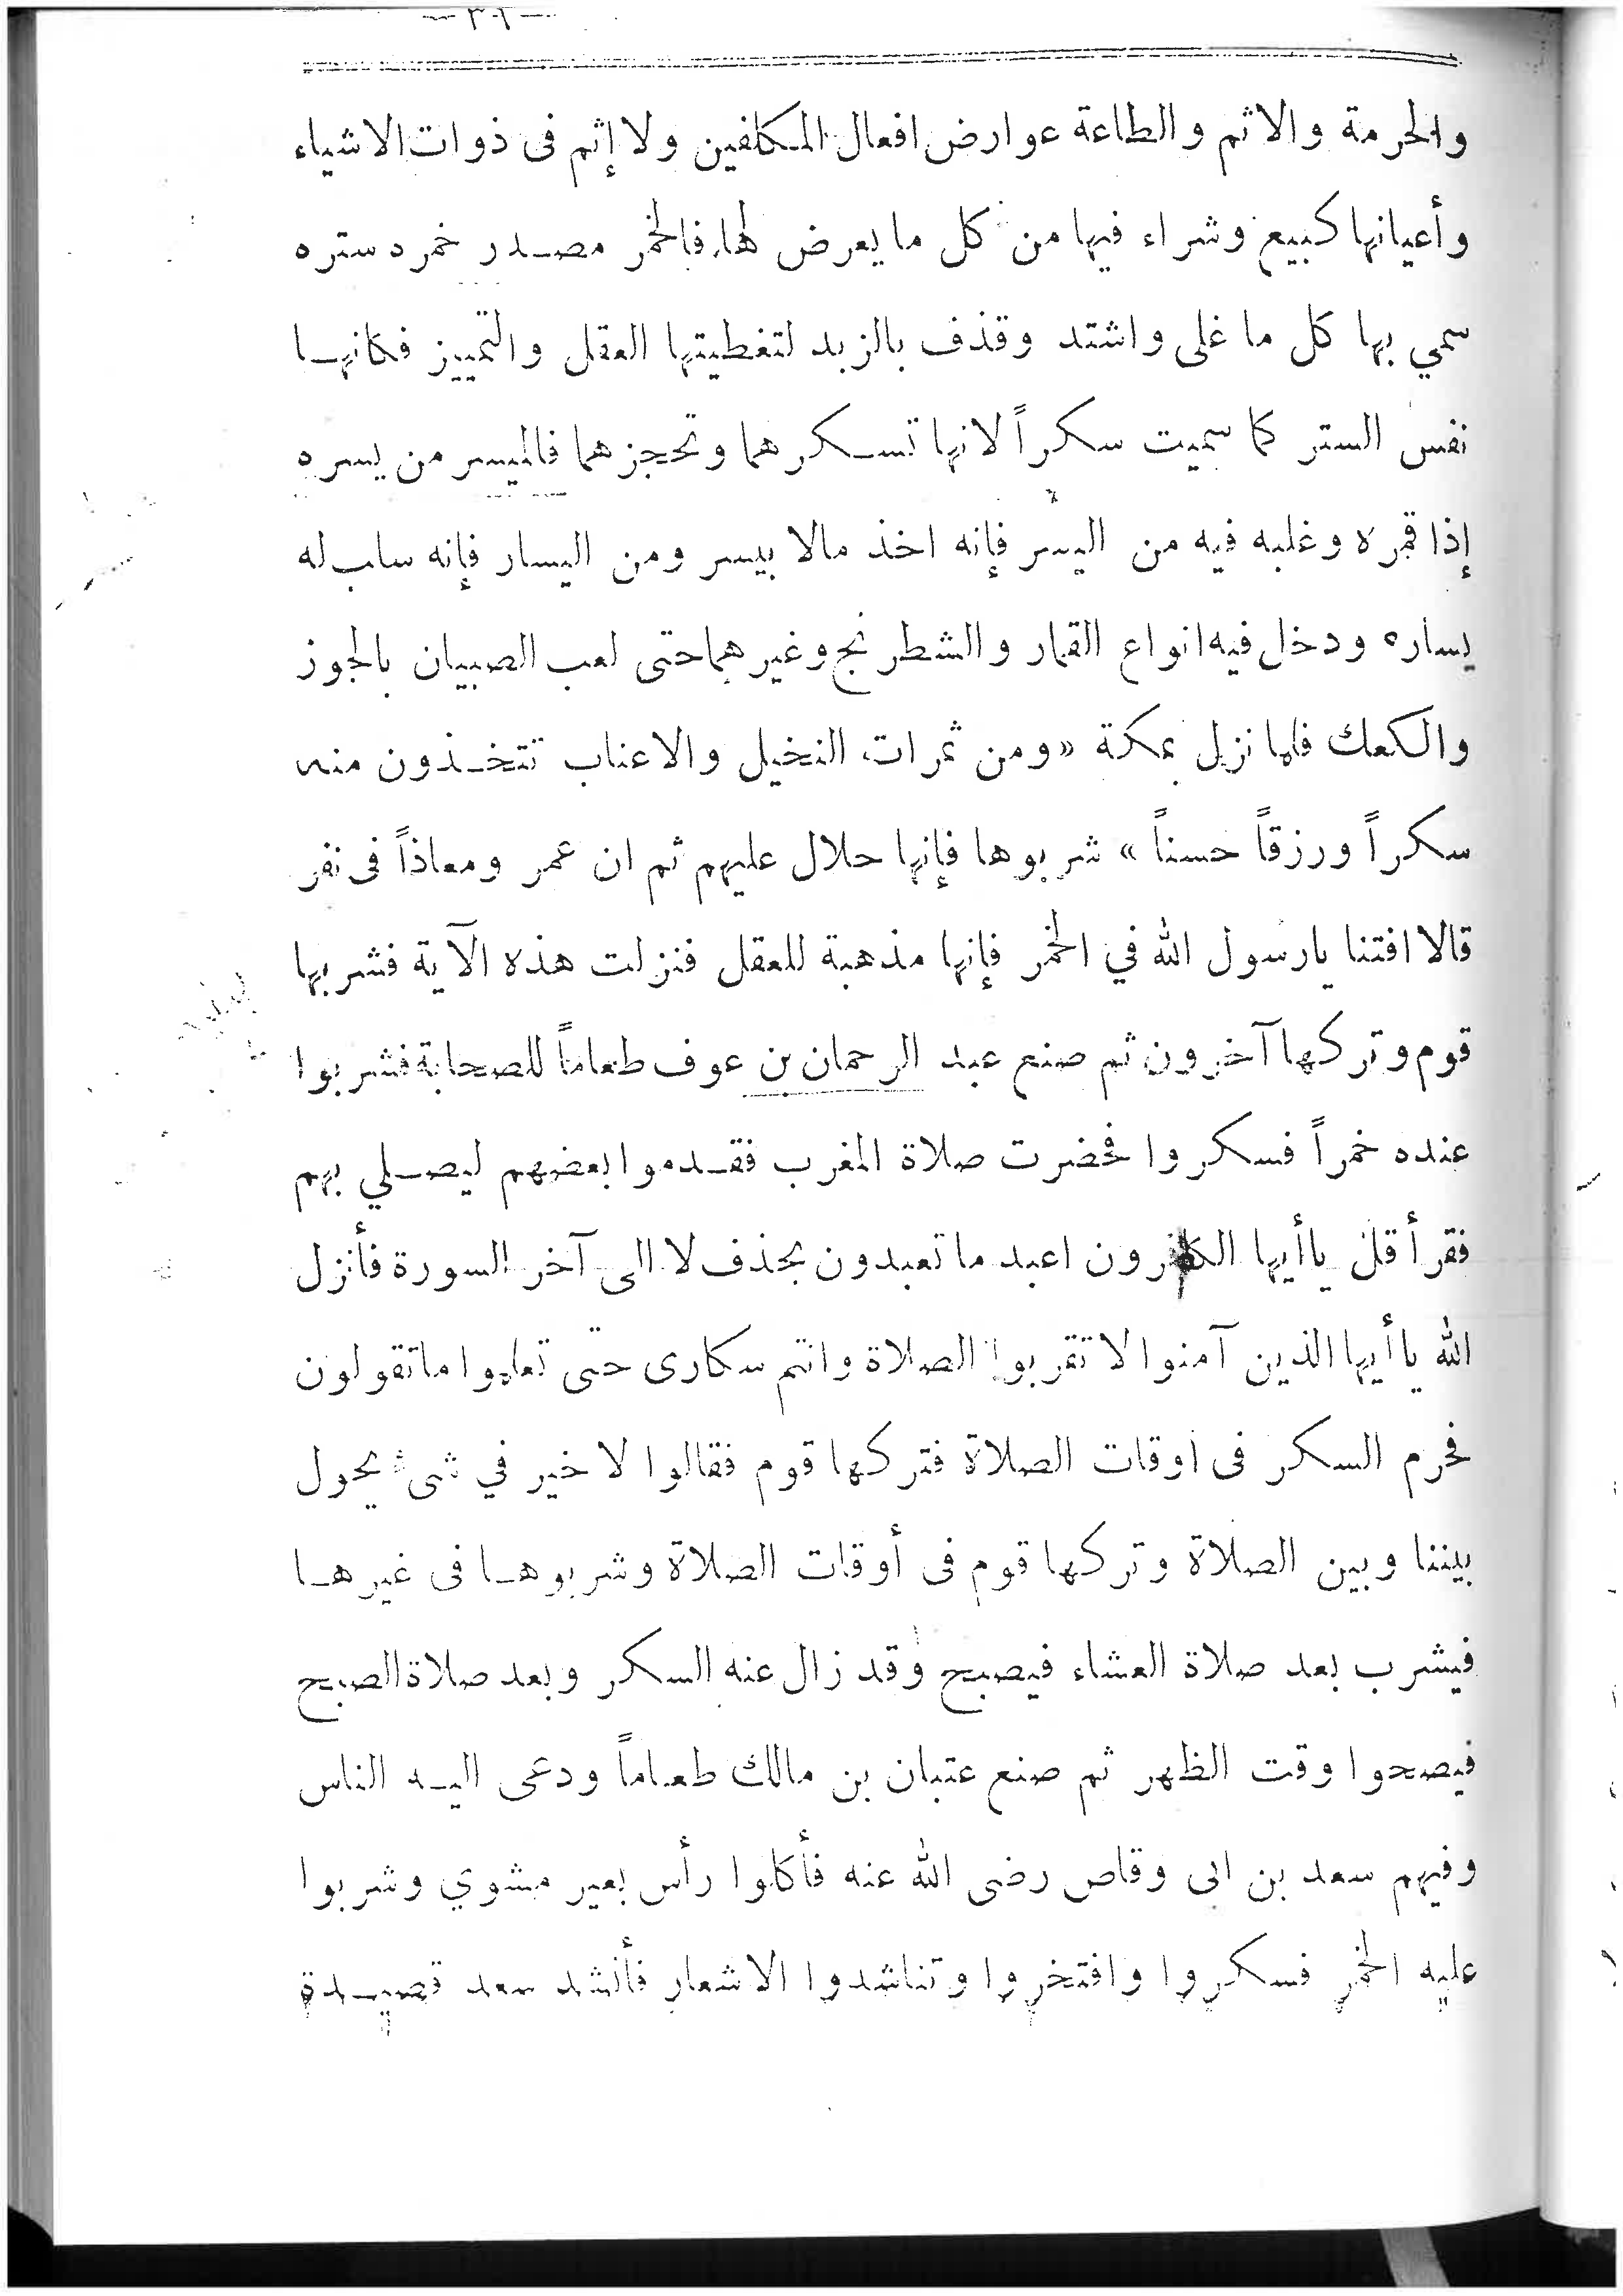 والحرمة والاثم والطاعة عوارض افعال المكلفين ولا إثم فى ذوات الاشياء
وأعيانها كبيع وشراء فيها من كل ما يعرض لها فالخمر مصدر خمره ستره
سمي بها كل ما غلى واشتد وقذف بالزبد لتغطيتها العقل والتمييز فكانها
نفس الستر كما سميت سكراً لانها تسكرهما وتحجزهما فالميسر من يسره
إذا قمره وغلبه فيه من اليسر فإنه اخذ مالا بيسر ومن اليسار فإنه سالب له
يساره ودخل فيه انواع القمار والشطرنج وغيرهما حتى لعب الصبيان بالجوز
والكعك فلما نزل بمكة «ومن ثمرات النخيل والاعناب تتخذون منه
سكراً ورزقاً حسناً» شربوها فإنها حلال عليهم ثم ان عمر ومعاذاً فى نفر
قالا افتنا يا رسول الله في الخمر فإنها مذهبة للعقل فنزلت هذه الآية فشربها
قوم وتركها آخرون ثم صنع عبد الرحمان بن عوف طعاماً للصحابة فشربوا
عنده خمراً فسكروا فحضرت صلاة المغرب فقدموا بعضهم ليصلي بهم
فقرأ قل يا أيها الكافرون اعبد ما تعبدون بحذف لا الى آخر السورة فأنزل
الله يا أيها الذين آمنوا لا تقربوا الصلاة وانتم سكارى حتى تعلموا ما تقولون
فحرم السكر فى اوقات الصلاة فتركها قوم فقالوا لا خير في شىء يحول
بيننا وبين الصلاة وتركها قوم فى أوقات الصلاة وشربوها فى غيرها
فيشرب بعد صلاة العشاء فيصبح وقد زال عنه السكر وبعد صلاة الصبح
فيصحوا وقت الظهر ثم صنع عتبان بن مالك طعاماً ودعى اليه الناس
وفيهم سعد بن ابى وقاص رضى الله عنه فأكلوا رأس بعير مشوي وشربوا
عليه الخمر فسكروا وافتخروا وتناشدوا الاشعار فأنشد سعد قصيدة